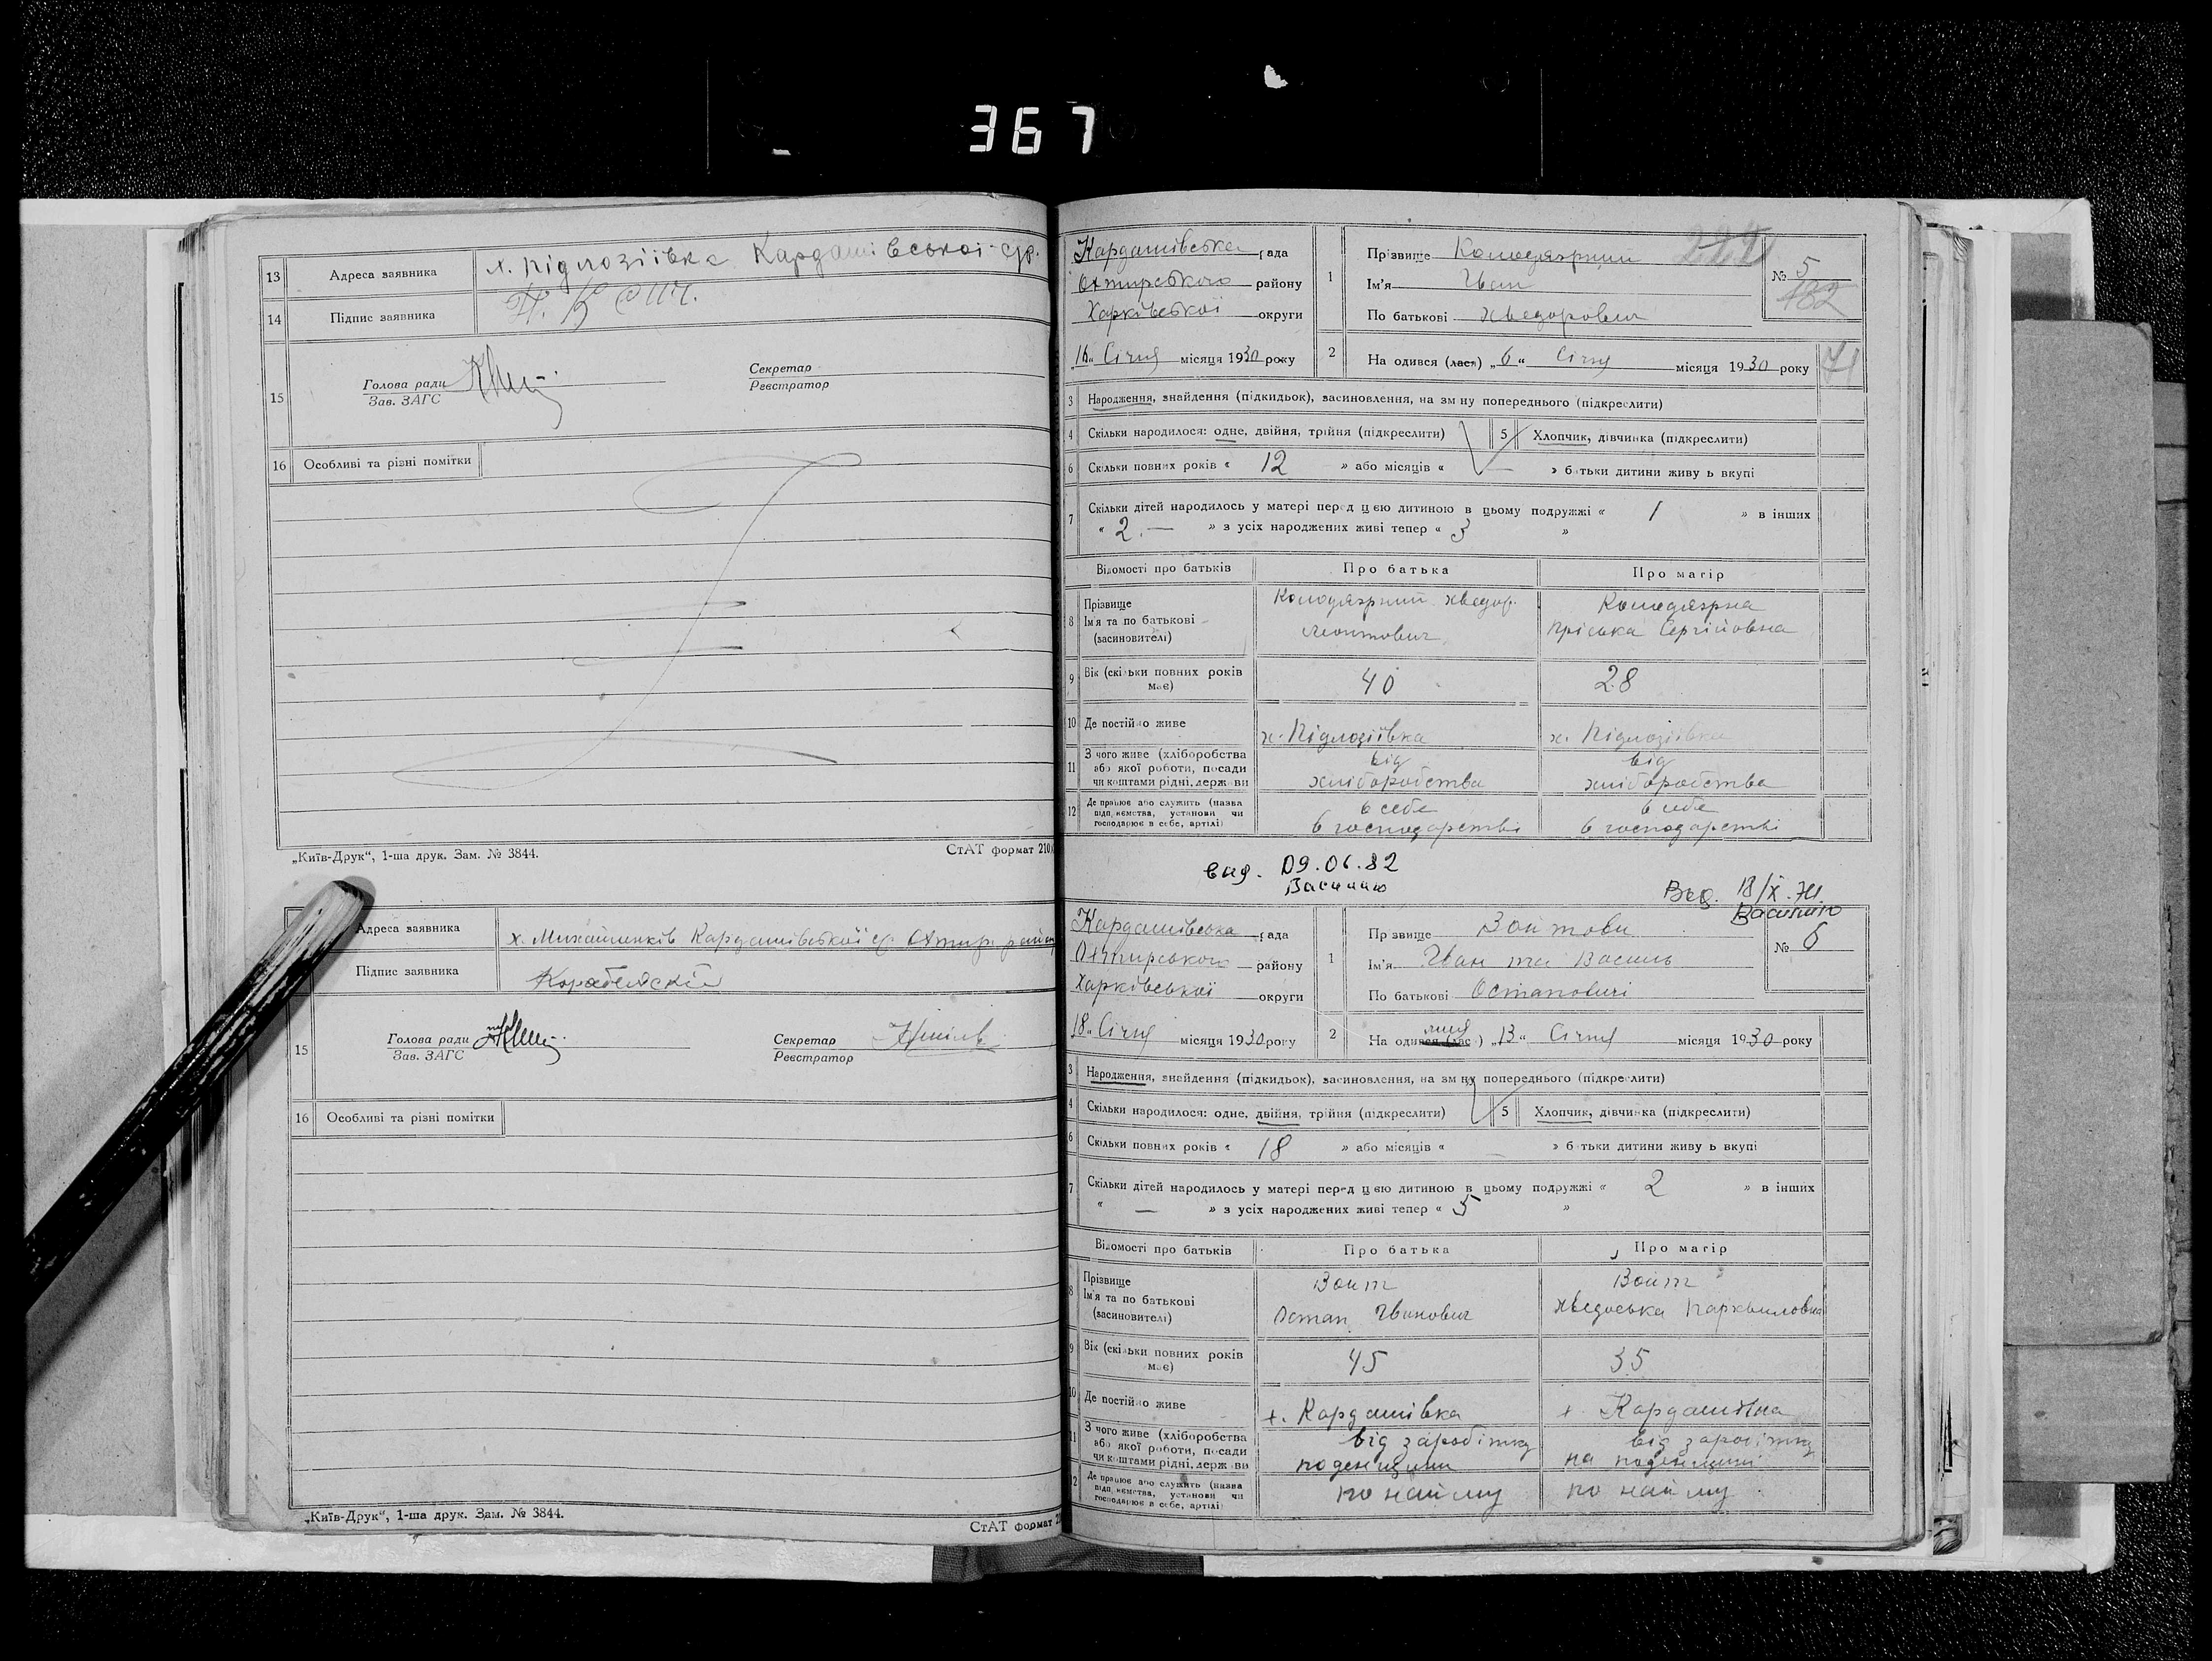 367
13 Адреса заявника х. Підлозіївка Кардашівської с/р.
14 Підпис заявника
15 Голова ради Секретар
Зав. ЗАГС Реєстратор
16 Особливі та різні помітки
„Київ-Друк“, 1-ша друк. Зам. № 3844. СтАТ формат 210
Адреса заявника х. Михайленків Кардашівської с/р Охтир. району
Підпис заявника
15 Голова ради Секретар
Зав. ЗАГС Реєстратор
16 Особливі та різні помітки
„Київ-Друк“, 1-ша друк. Зам. № 3844. СтАТ формат
Кардашівська рада
Охтирського району
Харківської округи
16 „ Січня місяця 1930 року
1 Прізвище Колодяжний
Ім'я Іван
По батькові Хведорович
№ 5
182
2 На одився (лася) „ 6 “ Січня місяця 1930 року
71
3 Народження, знайдення (підкидьок), засиновлення, на зм ну попереднього (підкреслити)
4 Скільки народилося: одне, двійня, трійня (підкреслити) 5 Хлопчик, дівчинка (підкреслити)
6 Скільки повних років « 12 » або місяців « — » батьки дитини живу ь вкупі
7 Скільки дітей народилось у матері перед цією дитиною в цьому подружжі « 1 » в інших
« 2 — » з усіх народжених живі тепер « 3 »
Відомості про батьків Про батька Про матір
8 Прізвище Ім'я та по батькові (засиновителі)
Колодяжний Хведор. Леонтович
Колодяжна Пріська Сергійовна
9 Вік (скільки повних років має) 40 28
10 Де постійно живе х. Підлозіївка х. Підлозіївка
11 З чого живе (хліборобства або якої роботи, посади чи коштами рідні, держави
від хліборобства від хліборобства
12 Де працює або служить (назва підприємства, установи чи господарює в себе, артілі)
в себе в господарстві в себе в господарстві
вид. 09.06.82
Василию
Выд. 18/X.74.
Василию
Кардашівська рада
Охтирського району
Харківської округи
18 „ Січня місяця 1930 року
1 Прізвище Войтови
Ім'я Іван та Василь
По батькові Остаповичі
№ 6
2 На одився (лася) лися „ 13 “ Січня місяця 1930 року
3 Народження, знайдення (підкидьок), засиновлення, на зм ну попереднього (підкреслити)
4 Скільки народилося: одне, двійня, трійня (підкреслити) 5 Хлопчик, дівчинка (підкреслити)
6 Скільки повних років « 18 » або місяців « — » батьки дитини живу ь вкупі
7 Скільки дітей народилось у матері перед цією дитиною в цьому подружжі « 2 » в інших
« — » з усіх народжених живі тепер « 5 »
Відомості про батьків Про батька Про матір
8 Прізвище Ім'я та по батькові (засиновителі)
Войт Остап Іванович
Войт Хведоська Пархвиловна
9 Вік (скільки повних років має) 45 35
10 Де постійно живе х. Кардашівка х. Кардашівка
11 З чого живе (хліборобства або якої роботи, посади чи коштами рідні, держави
від заробітку поденщини від заробітку на поденщині
12 Де працює або служить (назва підприємства, установи чи господарює в себе, артілі)
по найму по найму